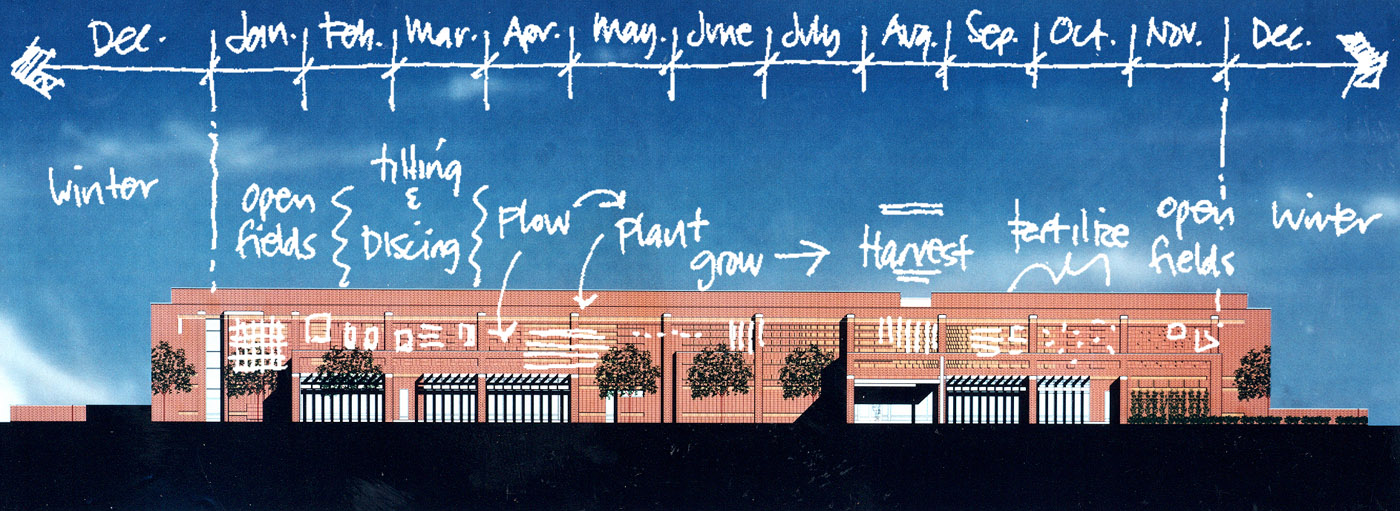 Dec. Jan. Feb. Mar. Apr. May. June July Aug. Sep. Oct. Nov. Dec.
winter
open
fields
tilling
&
Discing
Plow
Plant
grow
Harvest
fertilize
open
fields
winter